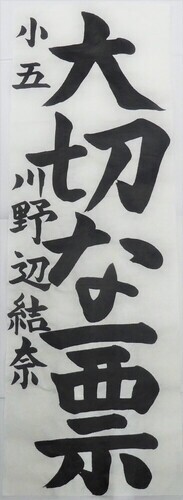 大切な一票
小五 川野辺結奈